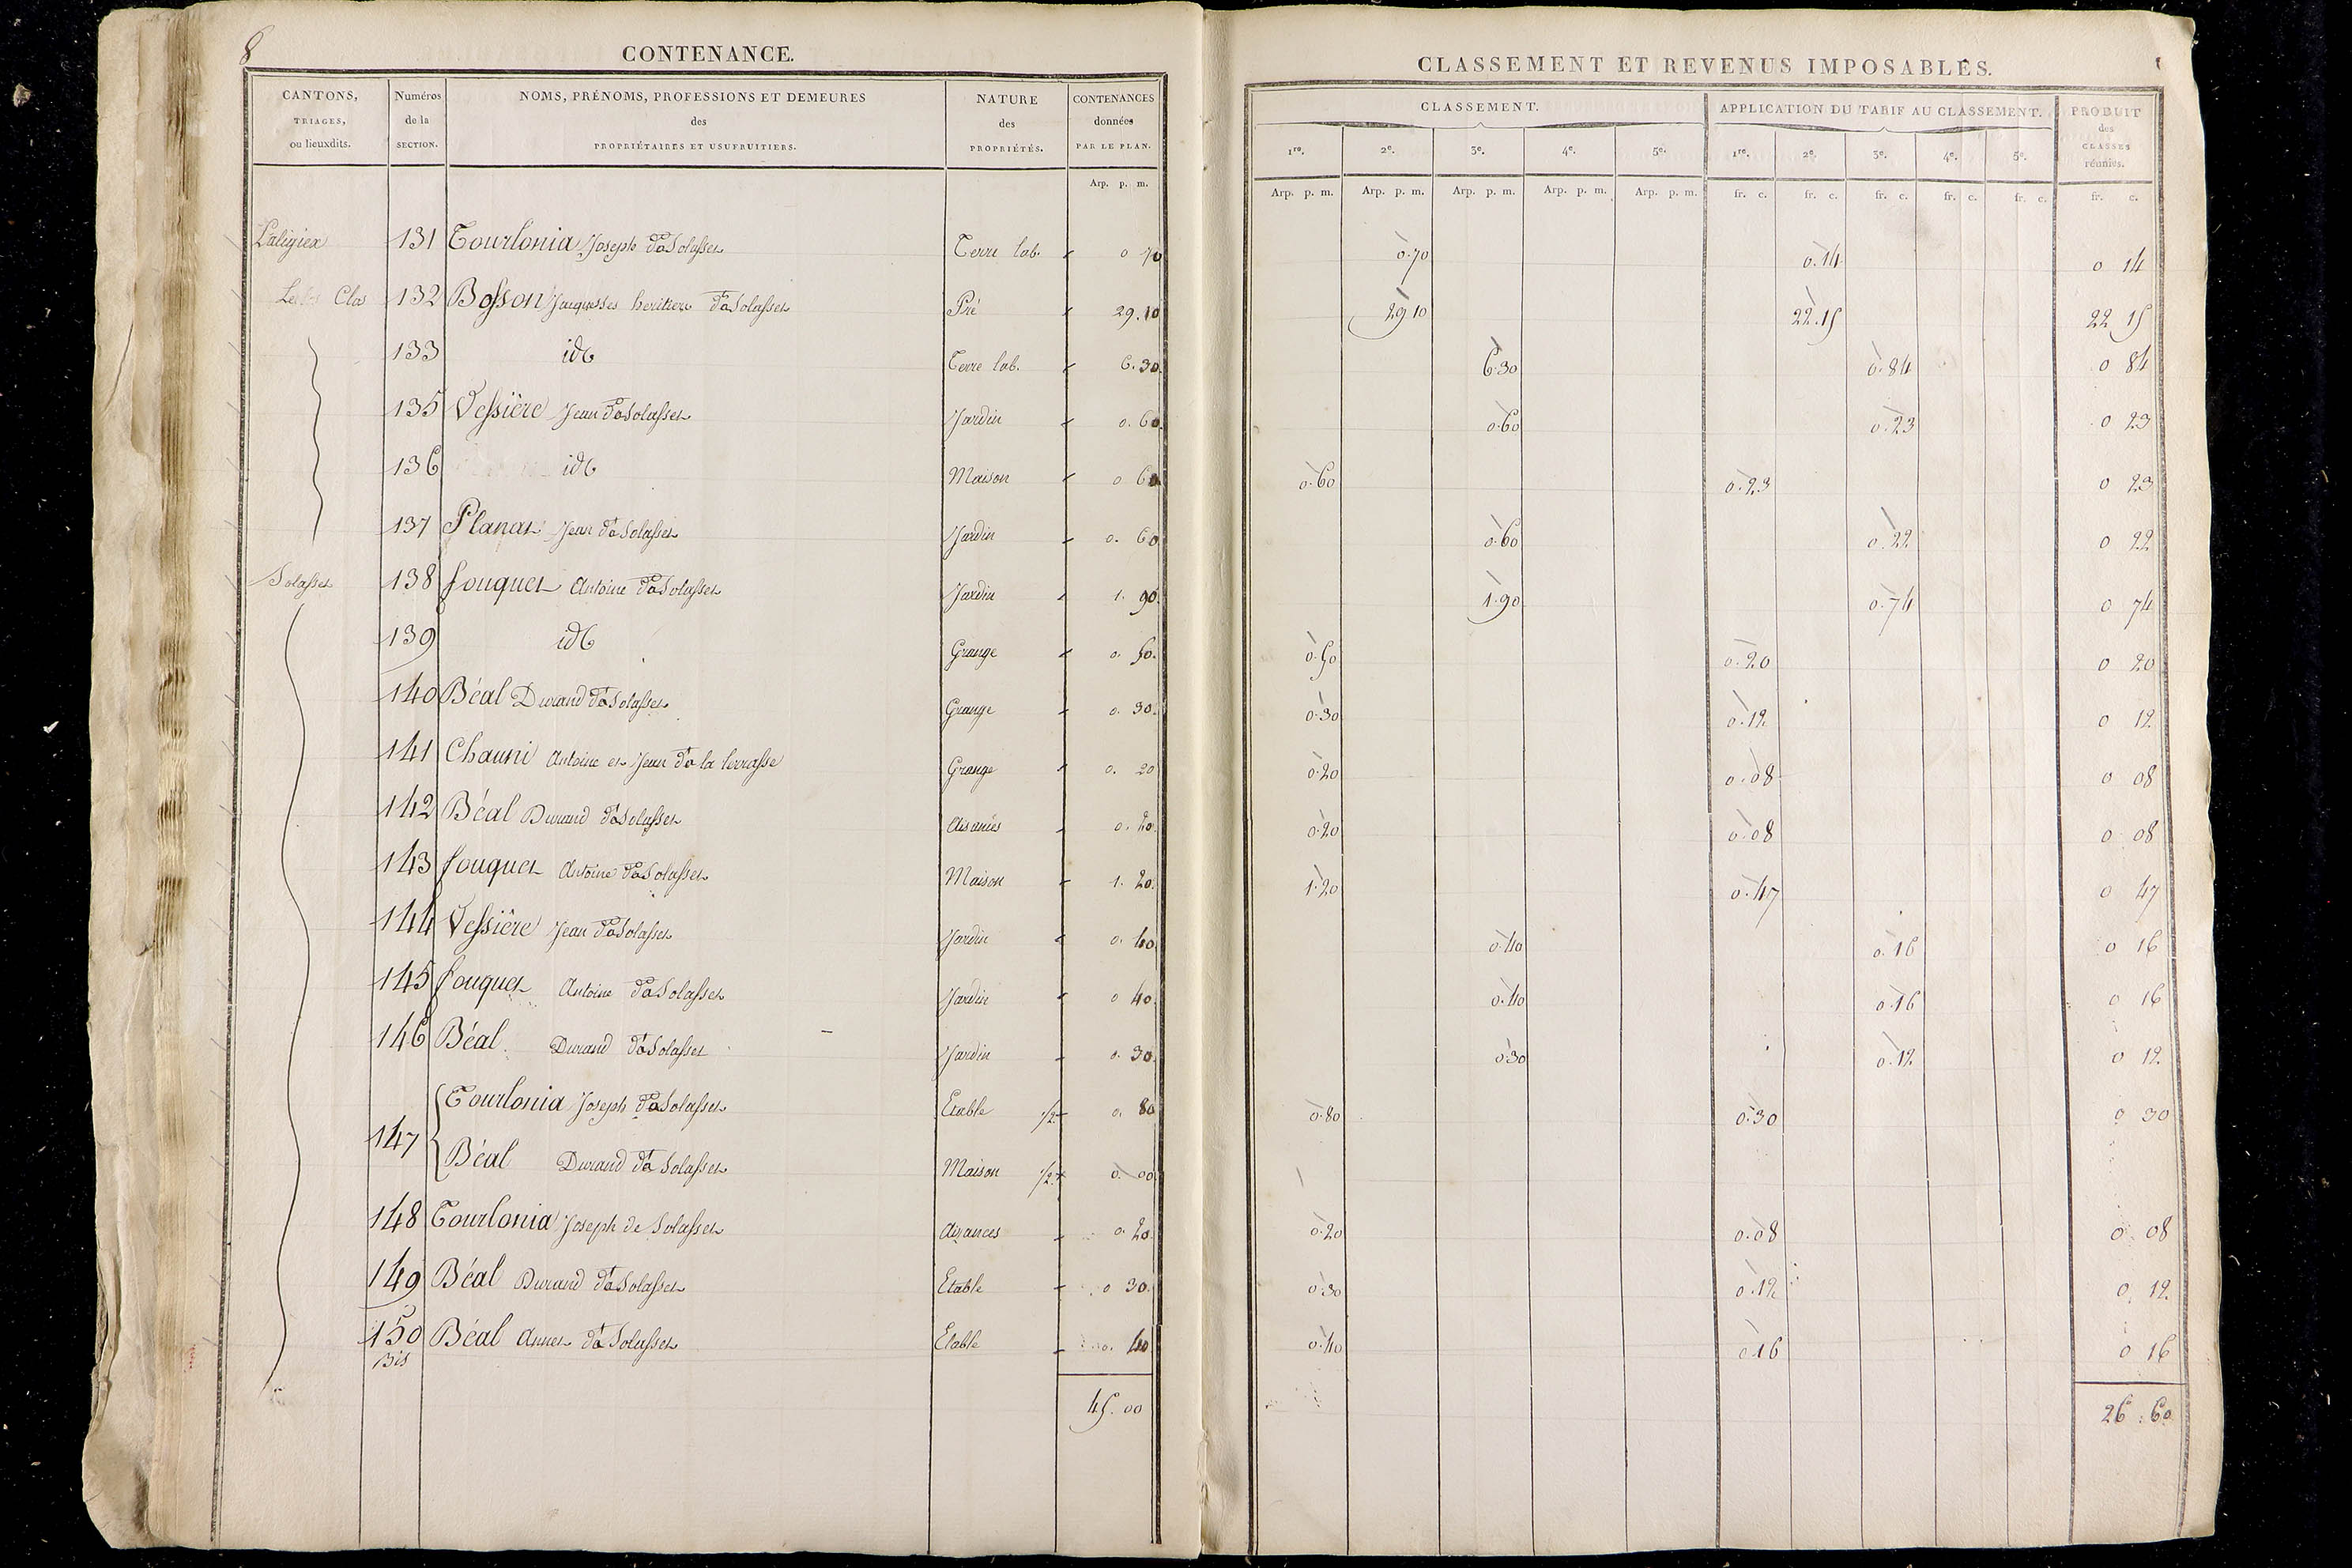 8
CONTENANCE.
CLASSEMENT ET REVENUS IMPOSABLES.
CANTONS, TRIAGES, ou lieuxdits.
Numéros de la SECTION.
NOMS, PRÉNOMS, PROFESSIONS ET DEMEURES des PROPRIÉTAIRES ET USUFRUITIERS.
NATURE des PROPRIÉTÉS.
CONTENANCES données PAR LE PLAN.
CLASSEMENT.
APPLICATION DU TARIF AU CLASSEMENT.
PRODUIT des CLASSES réunies.
1re. 2e. 3e. 4e. 5e. 1re. 2e. 3e. 4e. 5e.
Arp. p. m. Arp. p. m. Arp. p. m. Arp. p. m. Arp. p. m. Arp. p. m. fr. c. fr. c. fr. c. fr. c. fr. c. fr. c.
131 Tourlonia Joseph d'o Solasset Terre lab. 0 70 0.70 0.14 0 14
Clos 132 Bosson Jacques ses heritiers d'o Solasset Pré 29.10 29 10 22.15 22 15
133 id Terre lab. 6.30 6.30 0.84 0 84
135 Vessière Jean d'o Solasset Jardin 0.60 0.60 0.23 0 23
136 id Maison 0 60 0.60 0.23 0 23
137 Planat Jean d'o Solasset Jardin 0. 60 0.60 0.22 0 22
Solasset 138 fouquet Antoine d'o Solasset Jardin 1. 90 1.90 0.74 0 74
139 id Grange 0. 50. 0.50 0.20 0 20
140 Béal Durand d'o Solasset Grange 0. 30. 0.30 0.12 0 12
141 Chauni Antoine et Jean d'o la terrasse Grange 0. 20 0.20 0.08 0 08
142 Béal Durand d'o Solasset Aisances 0. 20. 0.20 0.08 0 08
143 fouquet Antoine d'o Solasset Maison 1. 20. 1.20 0.47 0 47
144 Vessière Jean d'o Solasset Jardin 0. 40 0.40 0.16 0 16
145 fouquet Antoine d'o Solasset Jardin 0 40. 0.40 0.16 0 16
146 Béal Durand d'o Solasset Jardin 0. 30. 0.30 0.12 0 12
147 Tourlonia Joseph d'o Solasset Etable 1/2 0. 80 0.80 0.30 0 30
Béal Durand d'o Solasset Maison 1/2 0. 00
148 Tourlonia Joseph de Solasset Aisances 0. 20 0.20 0.08 0 08
149 Béal Durand d'o Solasset Etable 0 30. 0.30 0.12 0. 12
150 Bis Béal Annet d'o Solasset Etable 0. 40 0.40 0 16 0 16
45.00 26.60